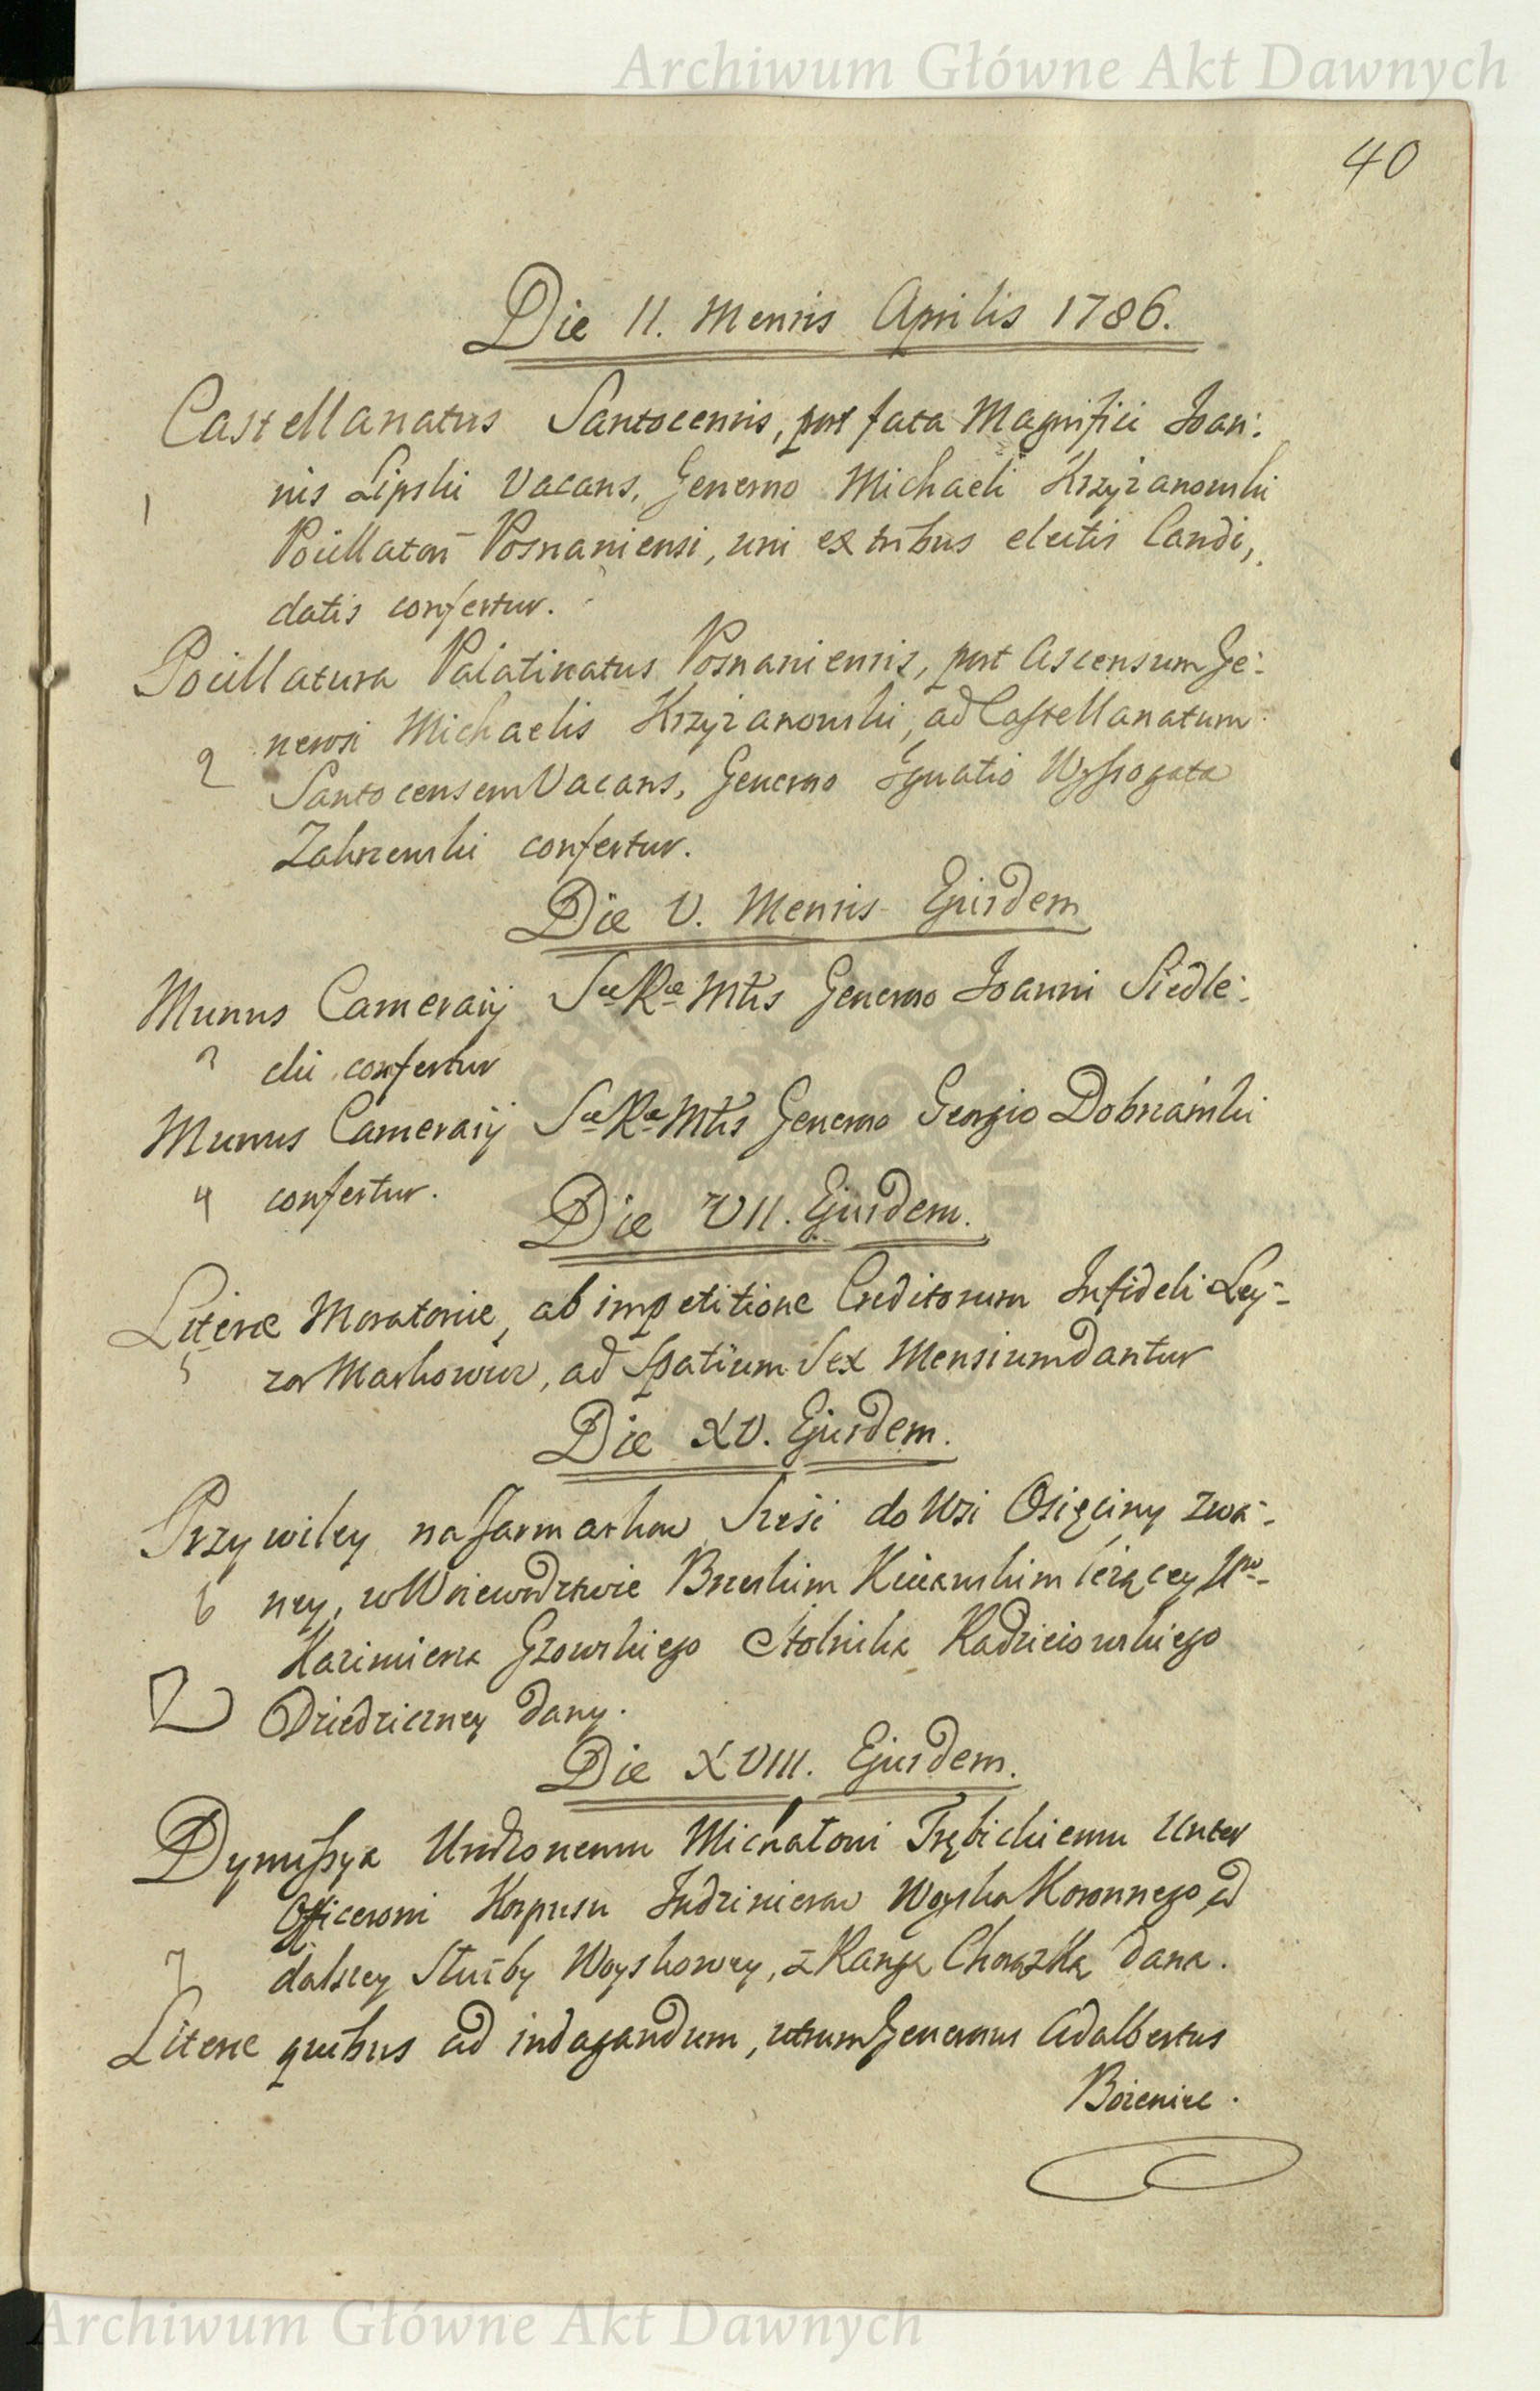 Archiwum Główne Akt Dawnych
40
Die II. Mensis Aprilis 1786.
Castellanatus Santocensis, post fata Magnifici Joan:
1 nis Lipski Vacans, Generoso Michaeli Krzyżanowski
Pocillatori Posnaniensi, uni ex tribus electis Candi,
datis confertur.
Pocillatura Palatinatus Posnaniensis, post Ascensum Ge:
2 nerosi Michaelis Krzyżanowski, ad Castellanatum
Santocensem Vacans, Generoso Ignatio Wyssogota
Zakrzewski confertur.
Die V. Mensis Ejusdem
Munus Camerarij Sæ Ræ Mtis Generoso Joanni Siedle:
3 cki confertur
Munus Camerarij Sæ Ræ Mtis Generoso Georgio Dobrzański
4 confertur.
Die VII. Ejusdem.
Literæ Moratoriæ, ab impetitione Creditorum Infideli Ley:
5 zor Markowicz, ad Spatium Sex Mensium dantur
Die XV. Ejusdem.
Przywiley na Jarmarkow Sześć do Wsi Osięciny zwa:
6 ney, w Woiewodztwie Brzeskim Kuiawskim leżącey Uro:
Kazimierza Gzowskiego Stolnika Radzieiowskiego
Dziedziczney dany.
Die XVIII. Ejusdem.
Dymissya Urodzonemu Michałowi Trębickiemu Unter
Officerowi Korpusu Indzinierow Woyska Koronnego od
7 dalszey Służby Woyskowey, z Rangą Chorążką dana.
Literæ quibus ad indagandum, utrum Generosus Adalbertus
Bozeniec.
Archiwum Główne Akt Dawnych